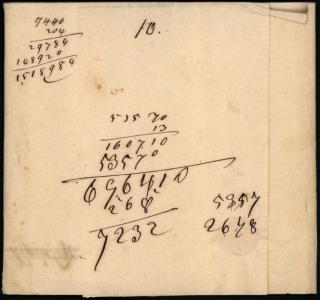 7446
204
29784
148920
1518984
10.
53570
13
160710
53570
696410
268
7232
5357
2678